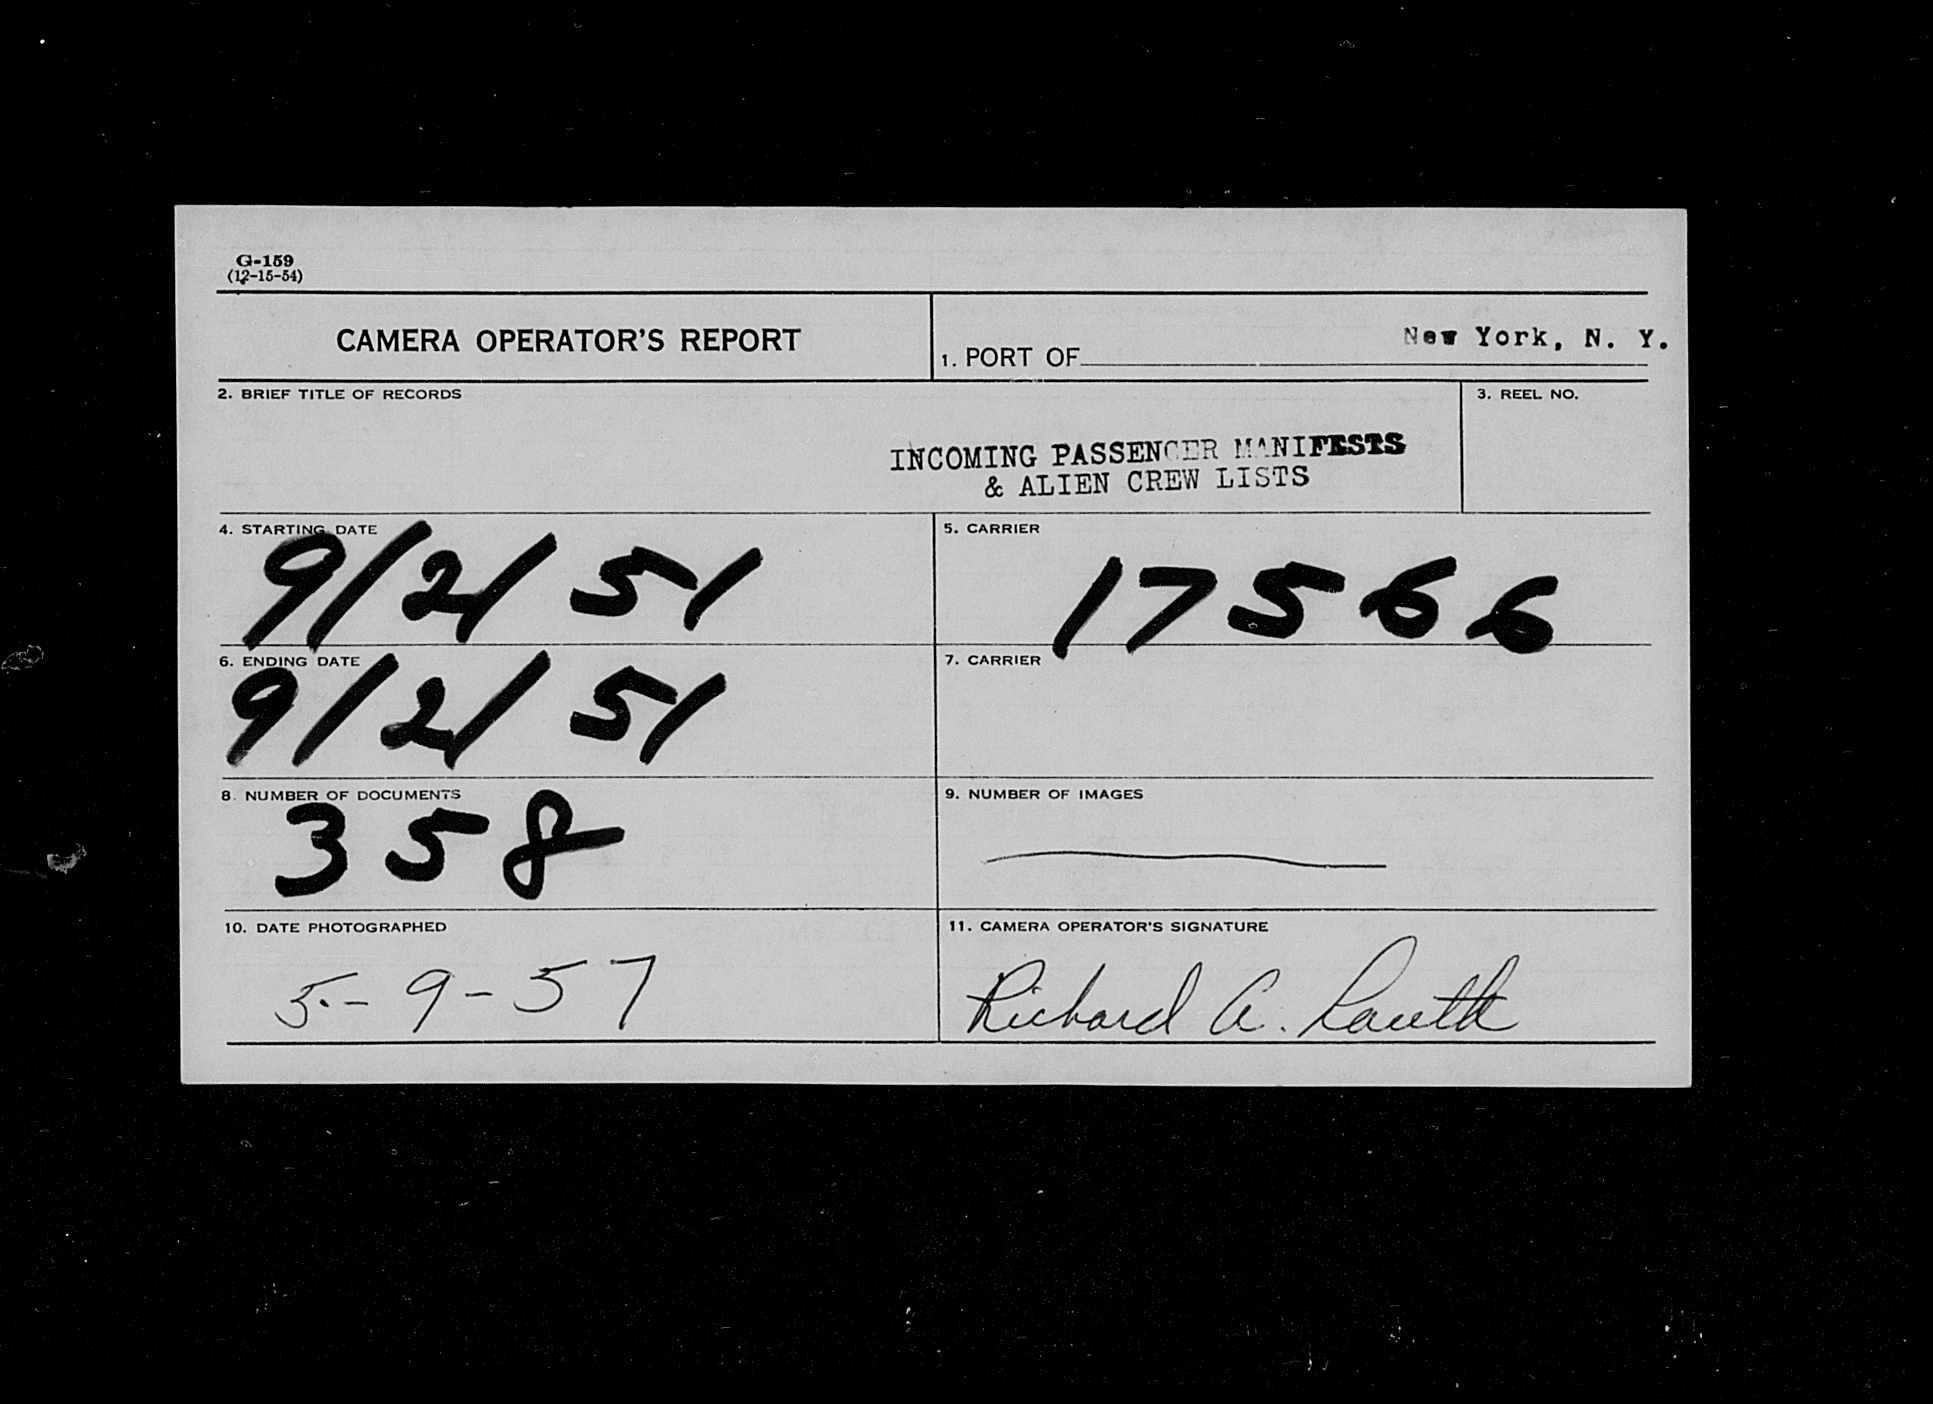 G-159
(12-15-54)
CAMERA OPERATOR'S REPORT
1. PORT OF New York, N. Y.
2. BRIEF TITLE OF RECORDS
INCOMING PASSENGER MANIFESTS
& ALIEN CREW LISTS
3. REEL NO.
4. STARTING DATE
9/2/51
5. CARRIER
17566
6. ENDING DATE
9/2/51
7. CARRIER
8. NUMBER OF DOCUMENTS
358
9. NUMBER OF IMAGES
10. DATE PHOTOGRAPHED
5-9-57
11. CAMERA OPERATOR'S SIGNATURE
Richard A.